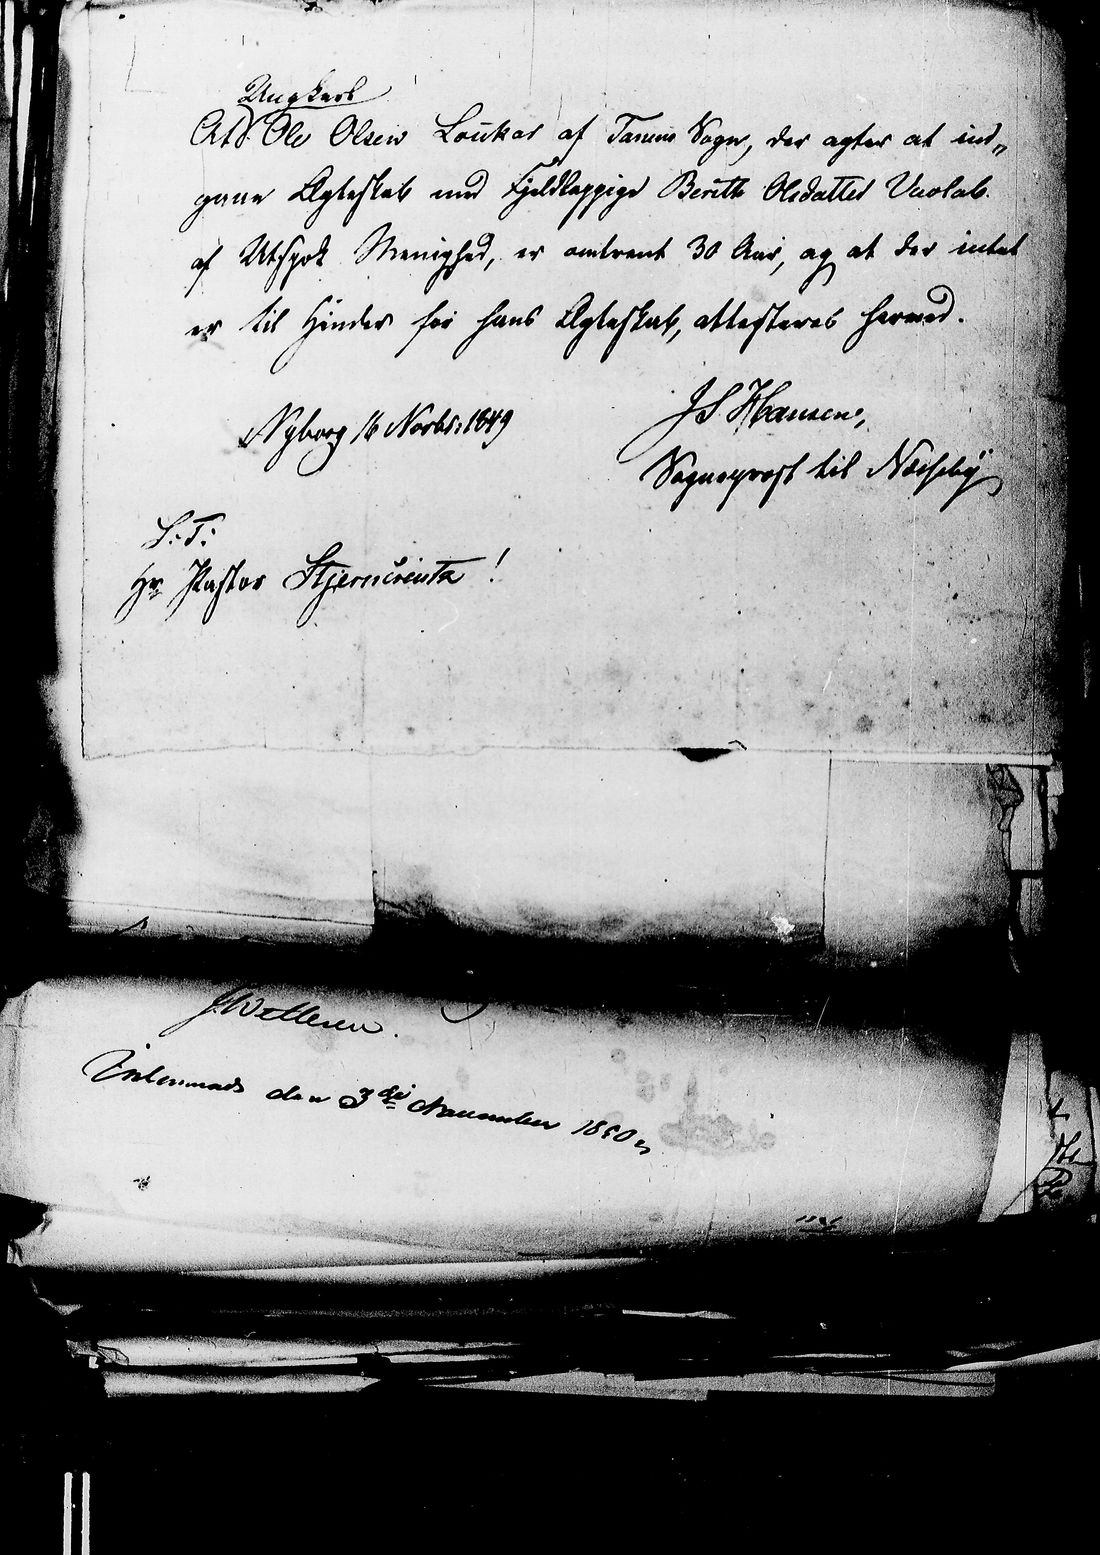 Ungkarl
At Ole Olsen Loukas af Tanens Sogn, der agter at ind„
gaae Ægteskab med Fjeldlappige Berith Olsdatter Vuolab
af Utsjok Menighed, er omtrent 30 Aar, og at der intet
er til Hinder for hans Ægteskab, attesteres herved.
Nyborg 16 Novbr: 1849
J S Hansen,
Sognepræst til Næsseby
S: T:
Hr Pastor Stjerncreutz!
den 3die November 1850